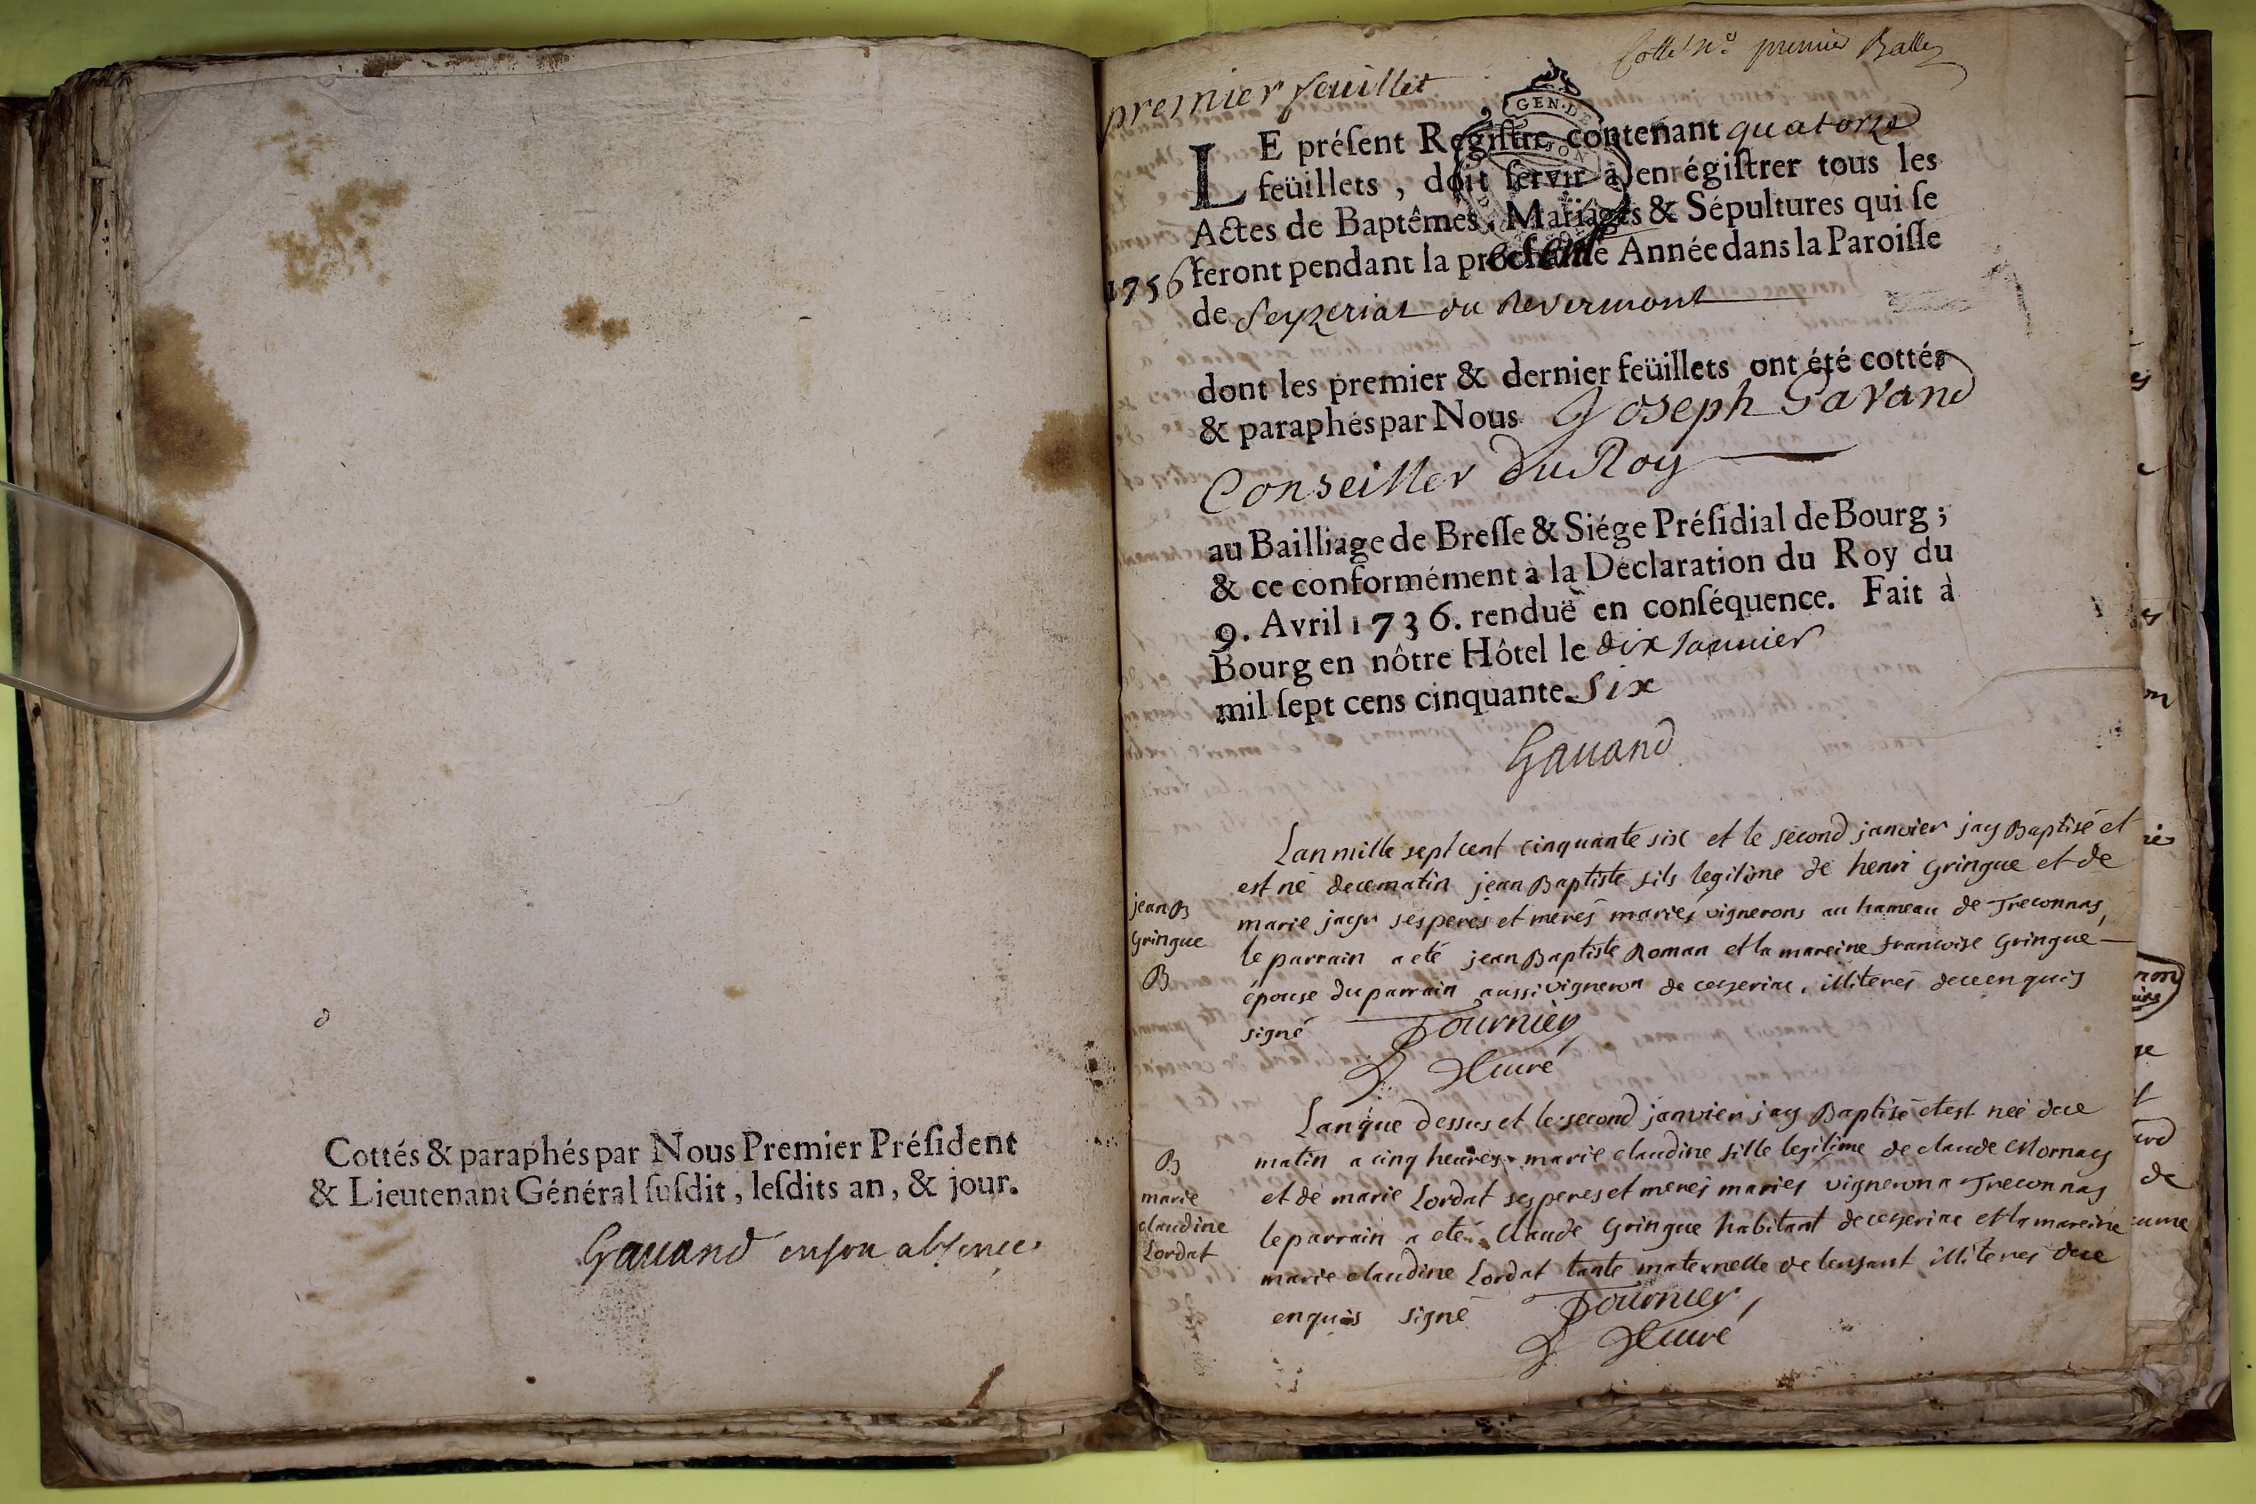 Cottés & paraphés par Nous Premier Préſident
& Lieutenant Général ſuſdit, leſdits an, & jour.
Gauand en son absence
Cotte no. premier
premier feuillet
GEN. DE
LE préſent Regiſtre contenant quatorze
feüillets, doit ſervir à enrégiſtrer tous les
Actes de Baptêmes, Mariages & Sépultures qui ſe
feront pendant la Année dans la Paroiſſe
1756
de Seyzeriat en Revermont
dont les premier & dernier feüillets ont été cottés
& paraphés par Nous Joseph Gavand
Conseiller du Roy
au Bailliage de Breſſe & Siége Préſidial de Bourg;
& ce conformément à la Déclaration du Roy du
9. Avril 1736. renduë en conſéquence. Fait à
Bourg en nôtre Hôtel le dix Januier
mil ſept cens cinquante Six
Gauand
jean B
Gringue
B
Lan mille sept cent cinquante six et le second janvier jay Baptisé et
est né dece matin jean Baptiste fils legitime de henri Gringue et de
marie jayr ses peres et meres mariés vignerons au hameau de Treconnas,
le parrain a eté jean Baptiste Roman et la mareine francoise Gringue
épouse du parrain aussi vigneron de ceyzeriac, illiterés dece enquis
signé Tournier
Curé
B
marie
claudine
Lordat
Lan que dessus et le second janvier jay Baptisé et est neé dece
matin a cinq heures marie claudine fille legitime de claude Mornay
et de marie Lordat ses peres et meres mariés vigneron a Treconnas
le parrain a eté Claude Gringue habitant de ceyzeriac et la mareine
marie claudine Lordat tante maternelle de lenfant illiterés dece
enquis signé Tournier,
Curé